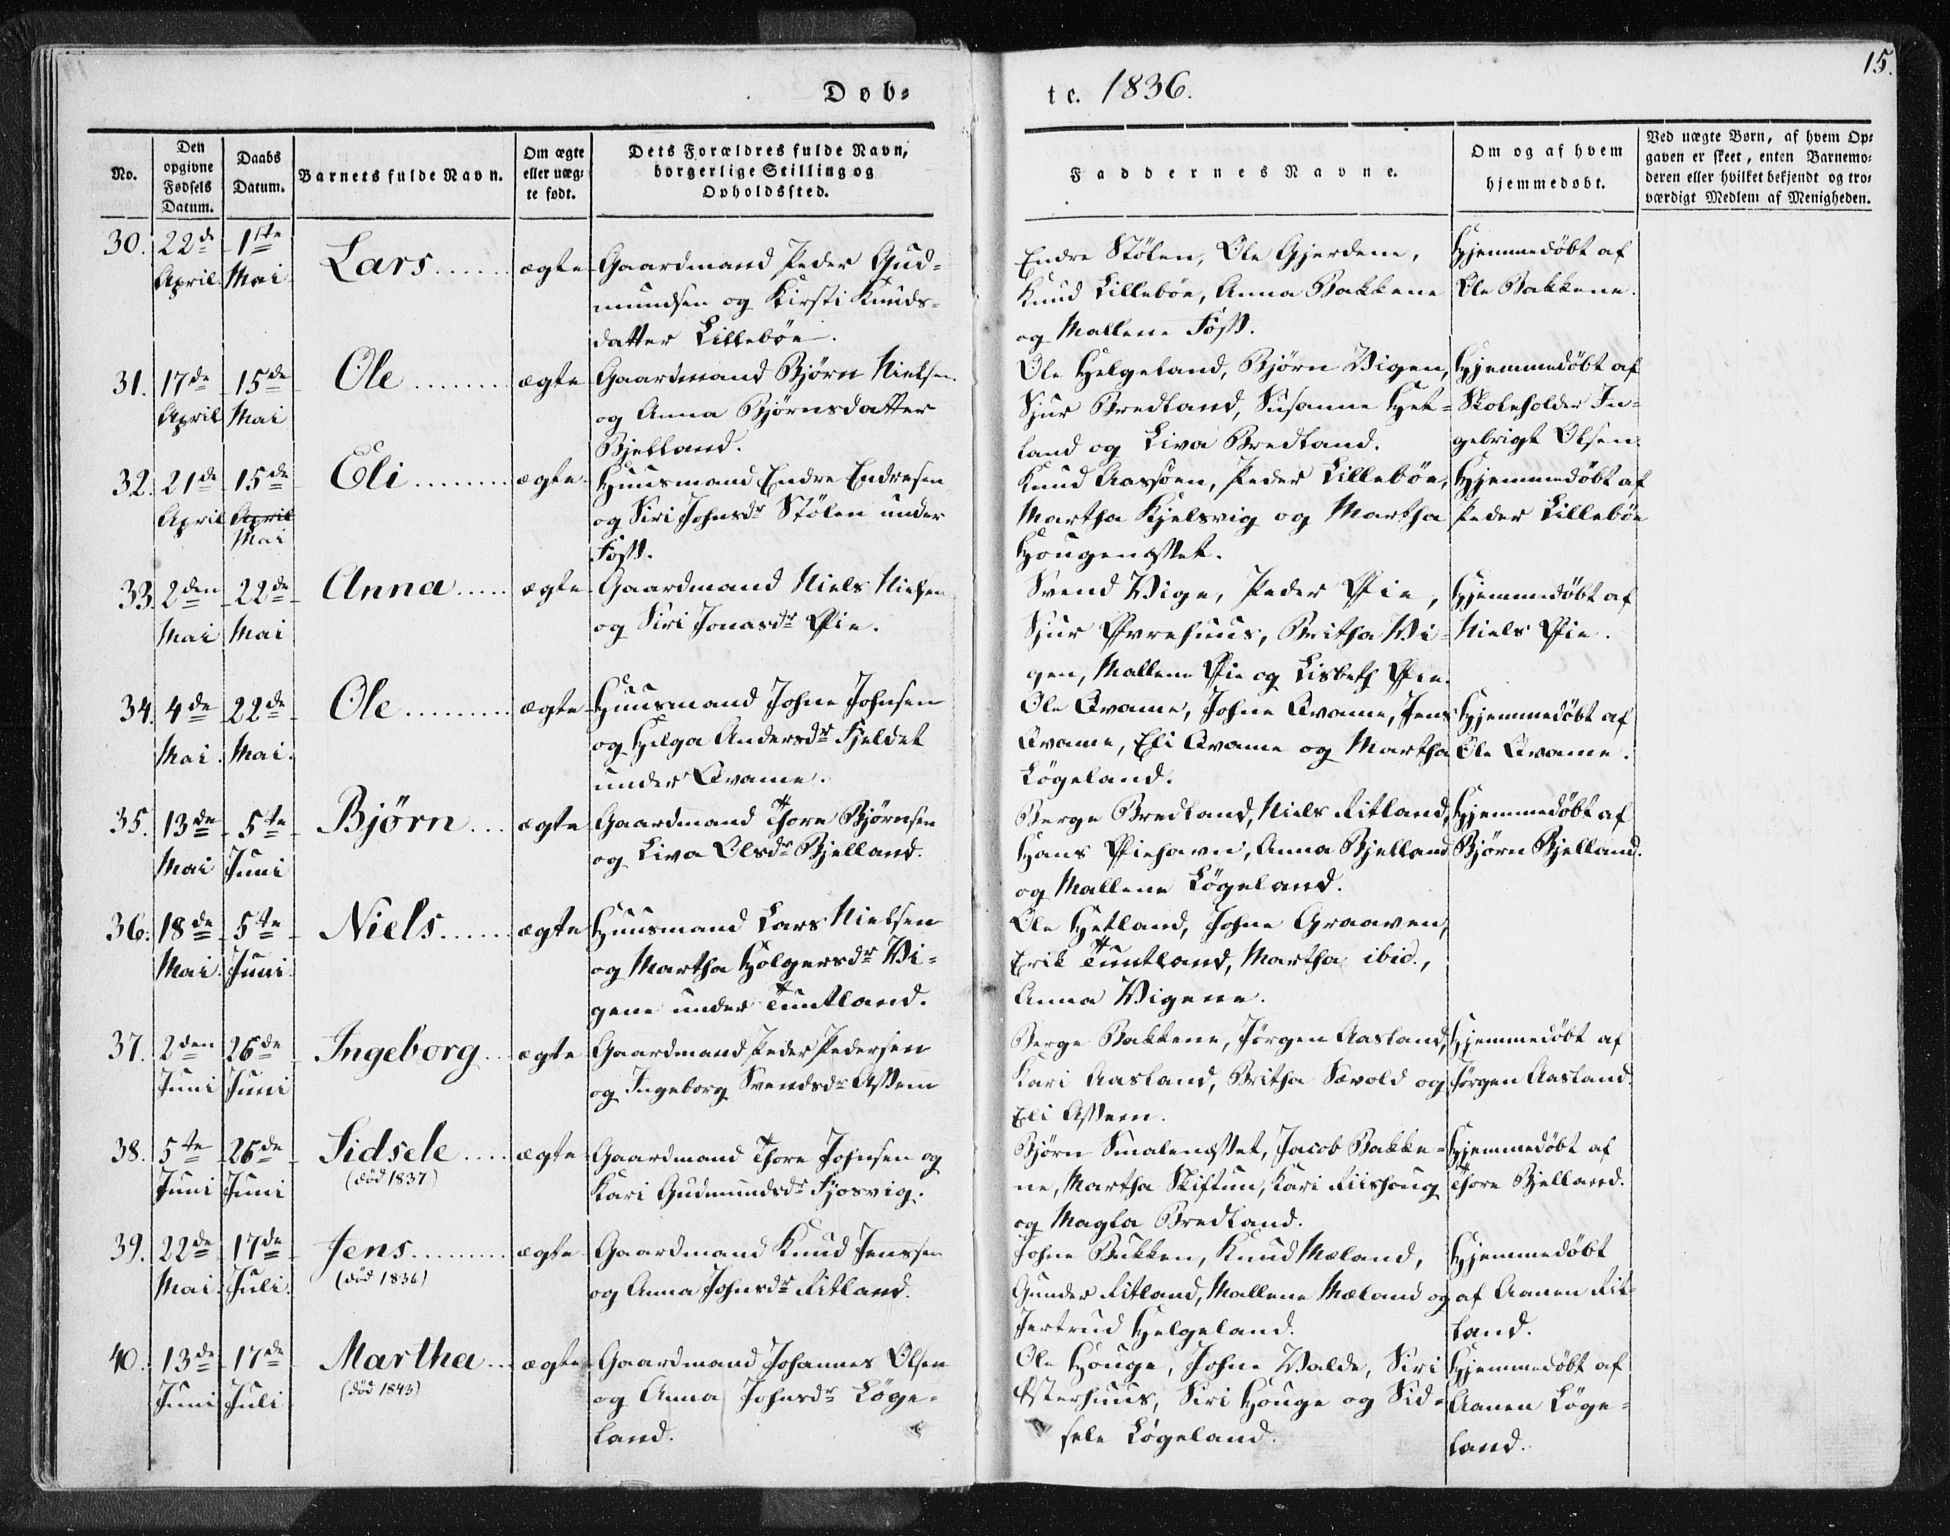 Døb-
te. 1836.
15.
No.
Den opgivne Fødsels Datum.
Daabs Datum.
Barnets fulde Navn.
Om ægte eller uæg-te født.
Dets Forældres fulde Navn, borgerlige Stilling og Opholdssted.
Faddernes Navne.
Om og af hvem hjemmedøbt.
Ved uægte Børn, af hvem Op-
gaven er skeet, enten Barnemo-
deren eller hvilket bekjendt og tro-
værdigt Medlem af Menigheden.
30. 22de April 1ste Mai Lars ...... ægte
Gaardmand Peder Gud-
mundsen og Kirsti Knuds-
datter Lillebøe.
Endre Stølen, Ole Gjerdene,
Knud Lillebøe, Anna Bakkene
og Mallene Foss.
Hjemmedøbt af
Ole Bakkene.
31. 17de April 15de Mai Ole ........ ægte
Gaardmand Bjørn Nielsen
og Anna Bjørnsdatter
Bjelland.
Ole Helgeland, Bjørn Vigen,
Sjur Bredland, Susanne Het-
land og Liva Bredland.
Hjemmedøbt af
Skoleholder In-
gebrigt Olsen.
32. 21de April 15de April Mai Eli ........ ægte
Huusmand Endre Endresen
og Siri Johnsdr Stølen under
Foss.
Knud Aasoen, Peder Lillebøe,
Martha Kjelsvig og Martha
Hougenæsset.
Hjemmedøbt af
Peder Lillebøe
33. 2den Mai 22de Mai Anna ..... ægte
Gaardmand Niels Nielsen
og Siri Jonasdr Øie.
Svend Vige, Peder Øie,
Sjur Øvrehuus, Britha Vi-
gen, Mallene Øie og Lisbeth Øie.
Hjemmedøbt af
Niels Øie.
34. 4de Mai. 22de Mai. Ole ......... ægte
Huusmand Johne Johnsen
og Helga Andersdr Fjeldet
under Qvame.
Ole Qvame, Johne Qvame, Jens
Qvame, Eli Qvame og Martha
Løgeland.
Hjemmedøbt af
Ole Qvame.
35. 13de Mai 5te Juni Bjørn ... ægte
Gaardmand Thore Bjørnsen
og Liva Olsdr Bjelland.
Berge Bredland, Niels Ritland,
Hans Øiehavn, Anna Bjelland
og Mallene Løgeland.
Hjemmedøbt af
Bjørn Bjelland.
36. 18de Mai 5te Juni Niels ...... ægte
Huusmand Lars Nielsen
og Martha Holgersdr Vi-
gene under Tuntland.
Ole Hetland, Johne Graaven,
Erik Tuntland, Martha ibid.,
Anna Vigene.
37. 2den Juni 26de Juni Ingeborg .. ægte
Gaardmand Peder Pedersen
og Ingeborg Svendsdr Assem
Berge Bakkene, Jørgen Aasland,
Kari Aasland, Britha Sævold og
Eli Assem.
Hjemmedøbt af
Jørgen Aasland.
38. 5te Juni 26de Juni Sidsele .... ægte
(død 1837)
Gaardmand Thore Johnsen og
Kari Gudmundsdr Fjosvig.
Bjørn Smalenæsset, Jacob Bakke-
ne, Martha Skiftun, Kari Riishoug
og Magla Bredland.
Hjemmedøbt af
Thore Bjelland.
39. 22de Mai 17de Juli Jens ......... ægte
(død 1836)
Gaardmand Knud Jenssen
og Anna Johnsdr Ritland.
Johne Bukken, Knud Mæland,
Gunder Ritland, Mallene Mæland og
Jertrud Helgeland.
Hjemmedøbt
af Aanen Rit-
land.
40. 13de Juni 17de Juli Martha ... ægte
(død 1843)
Gaardmand Johannes Olsen
og Anna Johnsdr Løge-
land.
Ole Houge, Johne Valde, Siri
Østerhuus, Siri Houge og Sid-
sele Løgeland.
Hjemmedøbt af
Aanen Løge-
land.